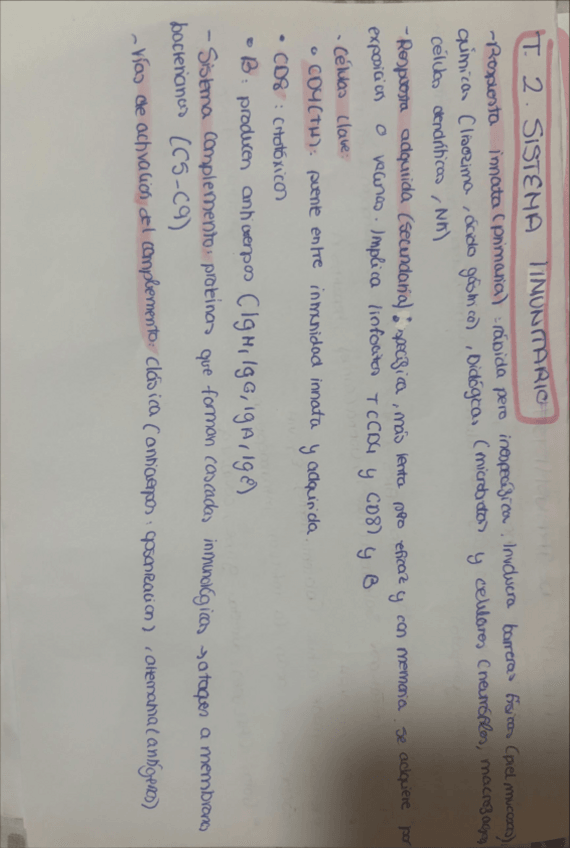 T. 2. SISTEMA INMUNITARIO
- Respuesta innata (primaria): rápida pero inespecífica. Involucra barreras físicas (piel, mucosas),
químicas (lisozima, ácido gástrico), biológicas (microbiota) y celulares (neutrófilos, macrófagos,
células dendríticas, NK)
- Respuesta adquirida (secundaria): específica, más lenta pero eficaz y con memoria. Se adquiere por
exposición o vacunas. Implica linfocitos T (CD4 y CD8) y B
· Células clave:
• CD4 (TH): puente entre inmunidad innata y adquirida
• CD8: citotóxicos
• B: producen anticuerpos (IgM, IgG, IgA, IgE)
- Sistema complemento: proteínas que forman cascadas inmunológicas → ataques a membrana
bacterianas (C5-C9)
- Vías de activación del complemento: clásica (anticuerpos, opsonización), alternativa (antígenos)